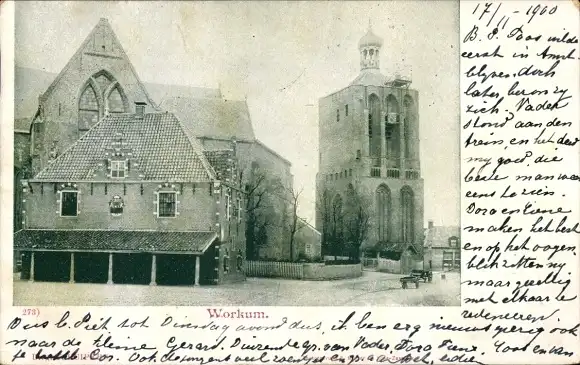 17/11 - 1900
B. P. Toos wilde
eerst in Amst.
blijven, doch
later, beron zij
zich. Vader
stond aan den
trein, en het deed
mij goed, die
beste man weer
eens te zien.
Dora en Tiene
maken het best
en op het oogen-
blik zitten wij
maar gezellig
met elkaar te
redeneeren.
273)
Workum.
Dus b. Piet tot Dinsdag avond dus, ik ben erg nieuwsgierig ook
naar de kleine Gerard. Duizend gr. van Vader, Dora, Tiene,
Cor. Ook de jongens veel zoentjes en